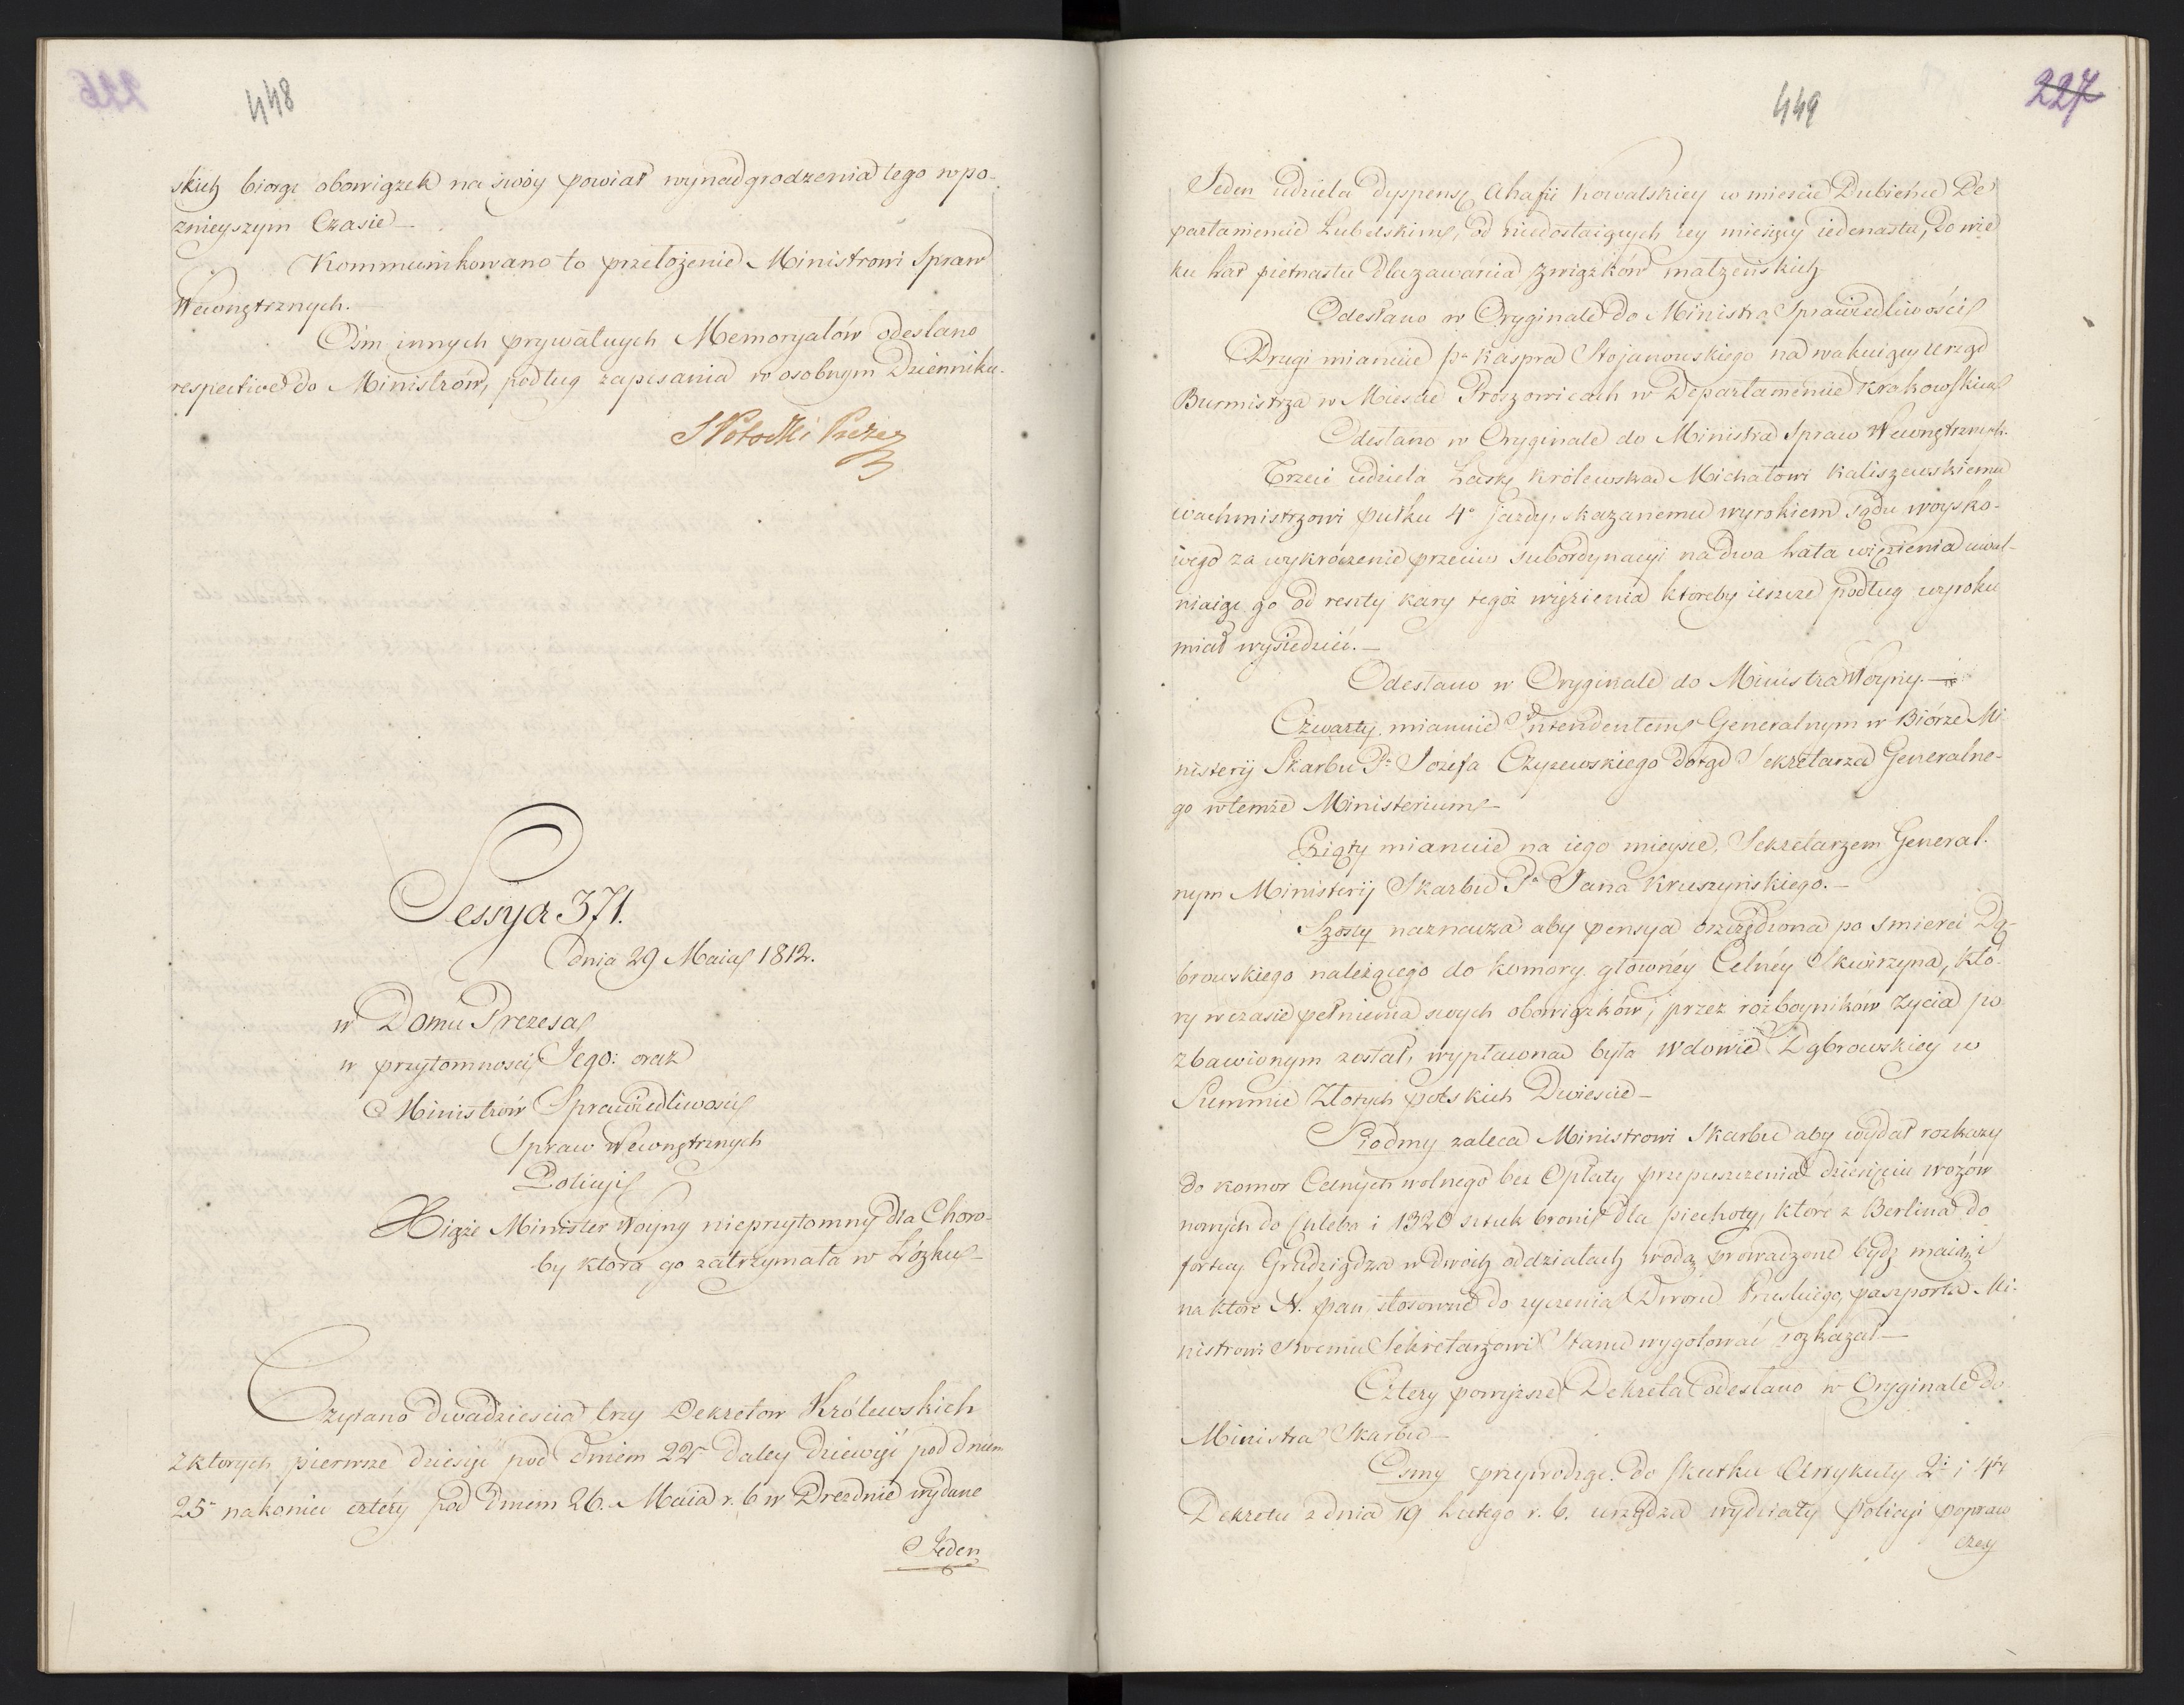 448
skich biorąc obowiązek na swóy powiat wynadgrodzenia tego w po-
znieyszym Czasie
Kommunikowano to przełożenie Ministrowi Spraw
Wewnętrznych.
Ośm innych prywatnych Memoryałów odesłano
respective do Ministrów, podług zapisania w osobnym Dzienniku.
S Potocki Prezes
Sessya 371.
dnia 29 Maia 1812.
w Domu Prezesa
w przytomności Jego: oraz
Ministrów Sprawiedliwości
Spraw Wewnętrznych
Policyi
Xiąże Minister Woyny nieprzytomny dla Choro-
by która go zatrzymała w Łóżku
Czytano dwadzieścia trzy Dekretow Królewskich
z ktorych pierwsze dziesięć pod dniem 22 daley dziewięć pod dniem
25 nakoniec cztéry pod dniem 26. Maia r. b w Dreznie wydane
Jeden
449
227
Jeden udziela dyspensę Ahafii Kowalskiey w mieście Dubieńce De-
partamencie Lubelskim, od niedostaiących iey miesięcy iedenastu, do wie
ku lat piętnastu dla zawarcia związków małżeńskich
Odesłano w Oryginale do Ministra Sprawiedliwości
Drugi mianuie Pa Kaspra Stojanowskiego na wakuiący Urząd
Burmistrza w Mieście Proszowicach w Departamencie Krakowskim
Odesłano w Oryginale do Ministra Spraw Wewnętrznych.
Trzeci udziela Łaskę Królewską Michałowi Kaliszewskiemu
wachmistrzowi pułku 4o jazdy, skazanemu wyrokiem sądu woysko-
wego za wykroczenie przeciw subordynacyi na dwa lata więzienia uwal-
niaiąc go od reszty kary tegoż więzienia ktoreby ieszcze podług wyroku
miał wysiedzieć.
Odesłano w Oryginale do Ministra Woyny.
Czwarty mianuie Intendentem Generalnym w Biórze Mi
nisteryi Skarbu Pa Józefa Czyżewskiego dotąd Sekretarza Generalne-
go w temże Ministerium
Piąty mianuie na iego mieysce, Sekretarzem General.
nym Ministeryi Skarbu Pa Jana Kruszyńskiego.
Szosty naznacza aby pensya oszczędzona po smierci Dą-
browskiego należącego do komory głownéy Celnéy Skwirzyna, któ
ry w czasie pełnienia swych obowiązków, przez rozboyników życia po
zbawionym został, wypłacona była Wdowie Dąbrowskiey w
Summie Złotych polskich Dwiescie
Siodmy zaleca Ministrowi Skarbu aby wydał rozkazy
do komor Celnych wolnego bez Opłaty przepuszczenia dziesięciu wozów
nowych do Chleba i 1320 sztuk broni dla piechoty, które z Berlina do
fortecy Grudziądza w dwóch oddziałach wodą prowadzone bydź maią i
na które N. pan stosownie do życzenia Dworu Pruskiego, paszporta Mi-
nistrowi Swemu Sekretarzowi Stanu wygotować rozkazał
Cztery powyższe Dekreta odesłano w Oryginale do
Ministra Skarbu
Osmy przywodząc do skutku Artykuły 2i i 4ty
Dekretu z dnia 19 Lutego r. b. urządza wydziały Policyi popraw
czey